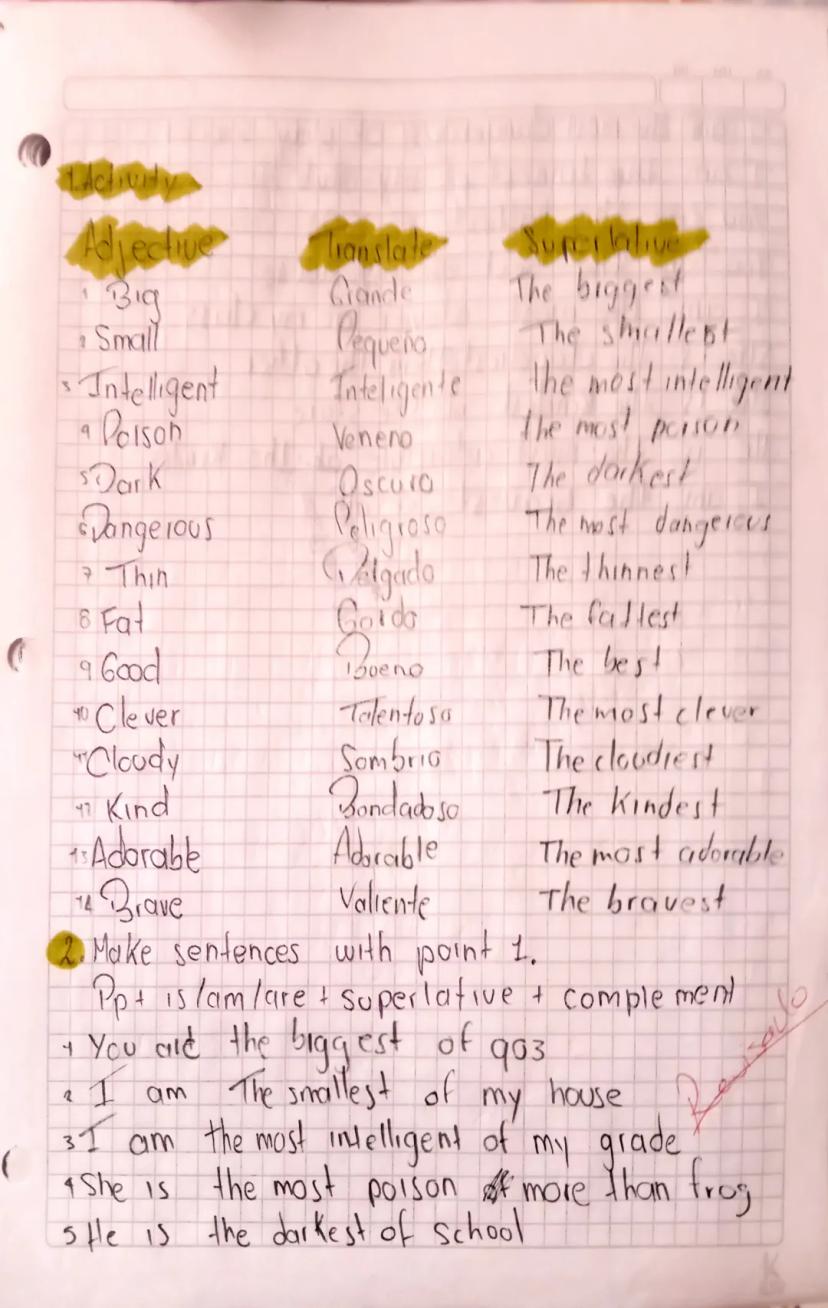 1. Activity
Adjective Translate Superlative
1 Big Grande The biggest
2 Small Pequeño The smallest
3 Intelligent Inteligente the most intelligent
4 Poison Veneno the most poison
5 Dark Oscuro The darkest
6 Dangerous Peligroso The most dangerous
7 Thin Delgado The thinnest
8 Fat Gordo The fattest
9 Good Bueno The best
10 Clever Talentoso The most clever
11 Cloudy Sombrio The cloudiest
12 Kind Bondadoso The Kindest
13 Adorable Adorable The most adorable
14 Brave Valiente The bravest
2. Make sentences with point 1.
Pp + is/am/are + superlative + complement
1 You are the biggest of 903
2 I am The smallest of my house
3 I am the most intelligent of my grade
4 She is the most poison more than frog
5 He is the darkest of school
Revisado